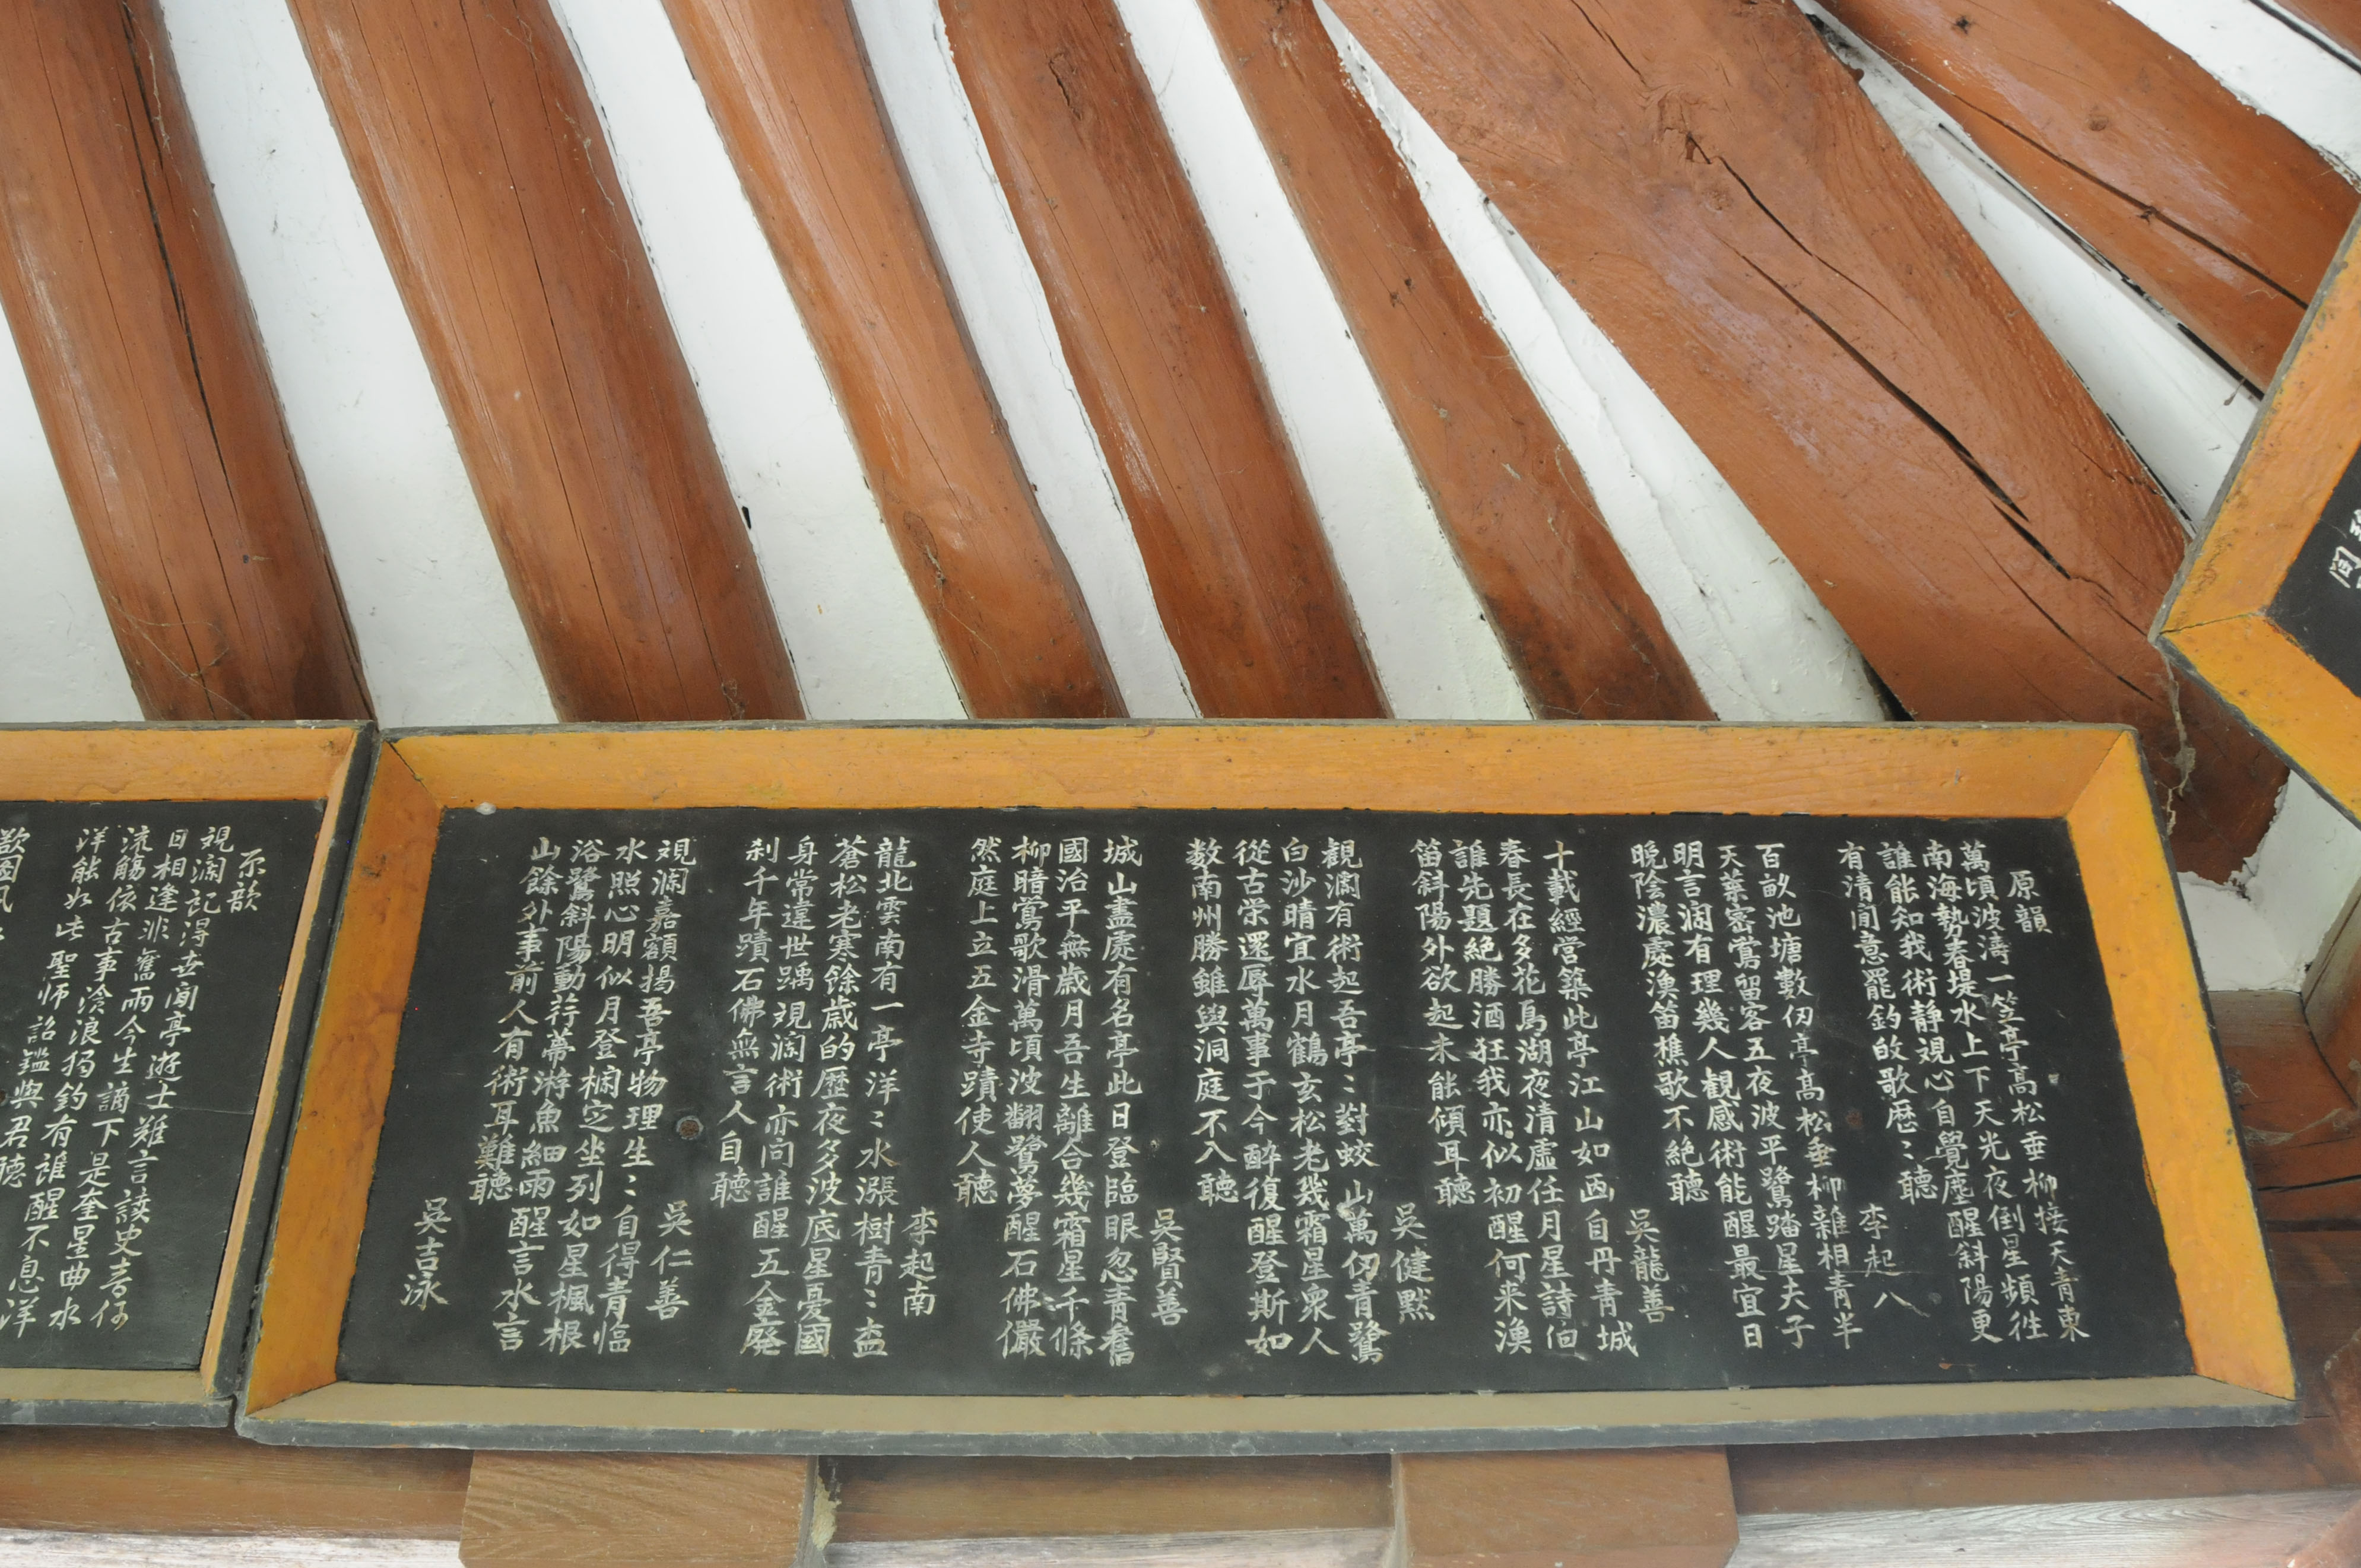 原韻
萬頃波濤一笠亭高松垂柳接天青東
南海勢春堤水上下天光夜倒星頻徃
誰能知我術静覌心自覺塵醒斜陽更
有清閒意罷釣的歌歴〻聽
李起八
百畝池塘數仞亭高松垂柳雜相青半
天葉密鶯留客五夜波平鷺踏星夫子
明言瀾有理幾人觀感術能醒最宜日
晩陰濃處漁笛樵歌不絶聽
吳龍善
十載經營築此亭江山如画自丹青城
春長在多花鳥湖夜清虛任月星詩伯
誰先題絶勝酒狂我亦似初醒何来漁
笛斜陽外欲起未能傾耳聽
吳健黙
觀瀾有術起吾亭〻對蛟山萬仞青鷺
白沙晴宜水月鶴玄松老幾霜星衆人
從古栄還辱萬事于今醉復醒登斯如
数南州勝雖與洞庭不入聽
吳賢善
城山盡處有名亭此日登臨眼忽青舊
國治平無歳月吾生離合幾霜星千條
柳暗鶯歌滑萬頃波翻鷺夢醒石佛儼
然庭上立五金寺蹟使人聽
李起南
龍北雲南有一亭洋〻水漲樹青〻盃
蒼松老寒餘歳的歷夜多波底星憂國
身常違世踽覌瀾術亦向誰醒五金廢
刹千年蹟石佛無言人自聽
吳仁善
覌瀾嘉額揭吾亭物理生〻自得青臨
水照心明似月登欄定坐列如星楓根
浴鷺斜陽動荇帶游魚細雨醒言水言
山餘外事前人有術耳難聽
吳吉泳
原韻
覌瀾記得世間亭遊士難言談史青何
日相逢非舊雨今生謫下是奎星曲水
流觴依古事滄浪獨釣有誰醒不息洋
洋能如此聖師詔鑑與君聽